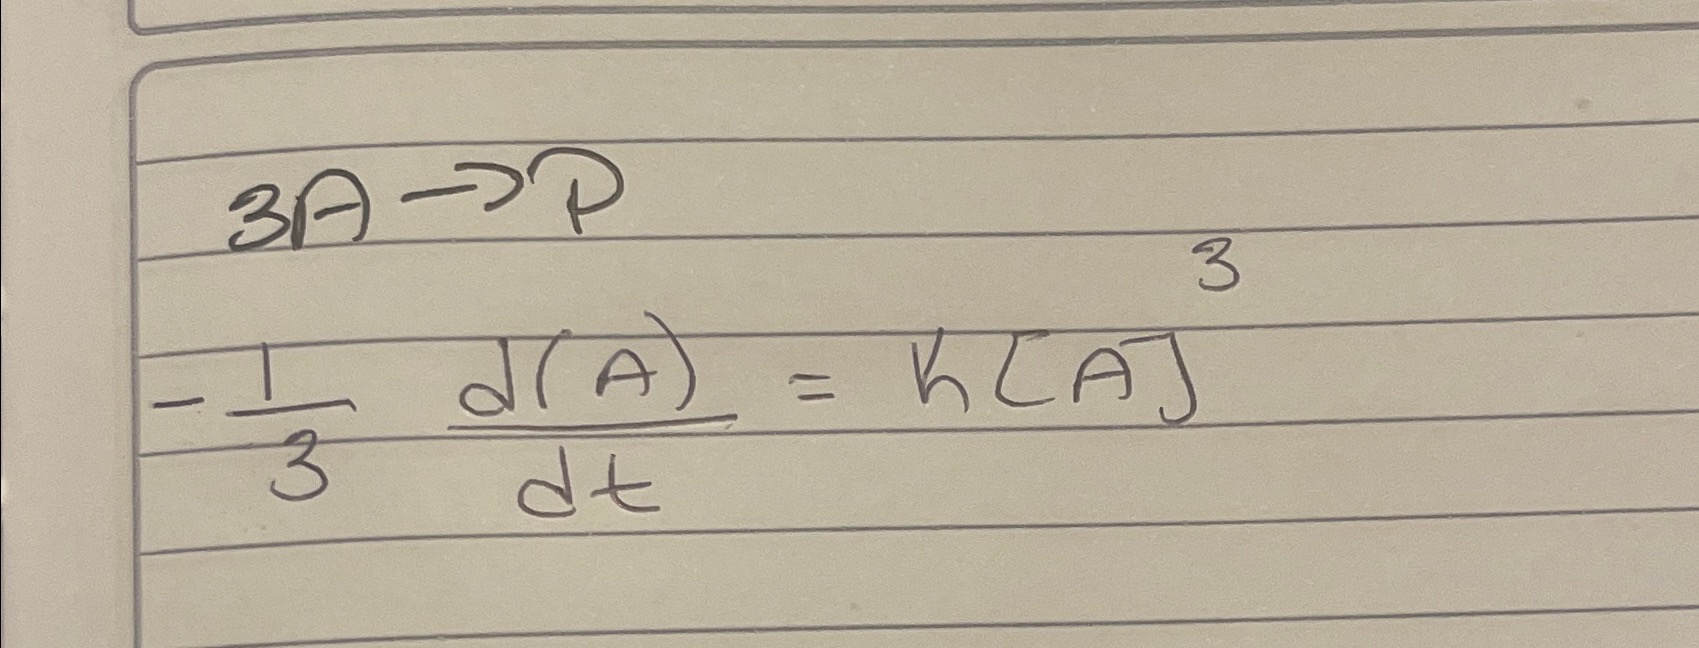 3A → P
- 1/3 d(A)/dt = k[A]³